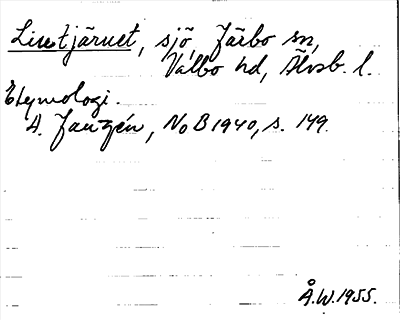 Linetjärnet, sjö, Järbo sn,
Valbo hd, Älvsb. l.
Etymologi.
A. Janzén, NoB 1940, s. 149.
Å.W. 1955.